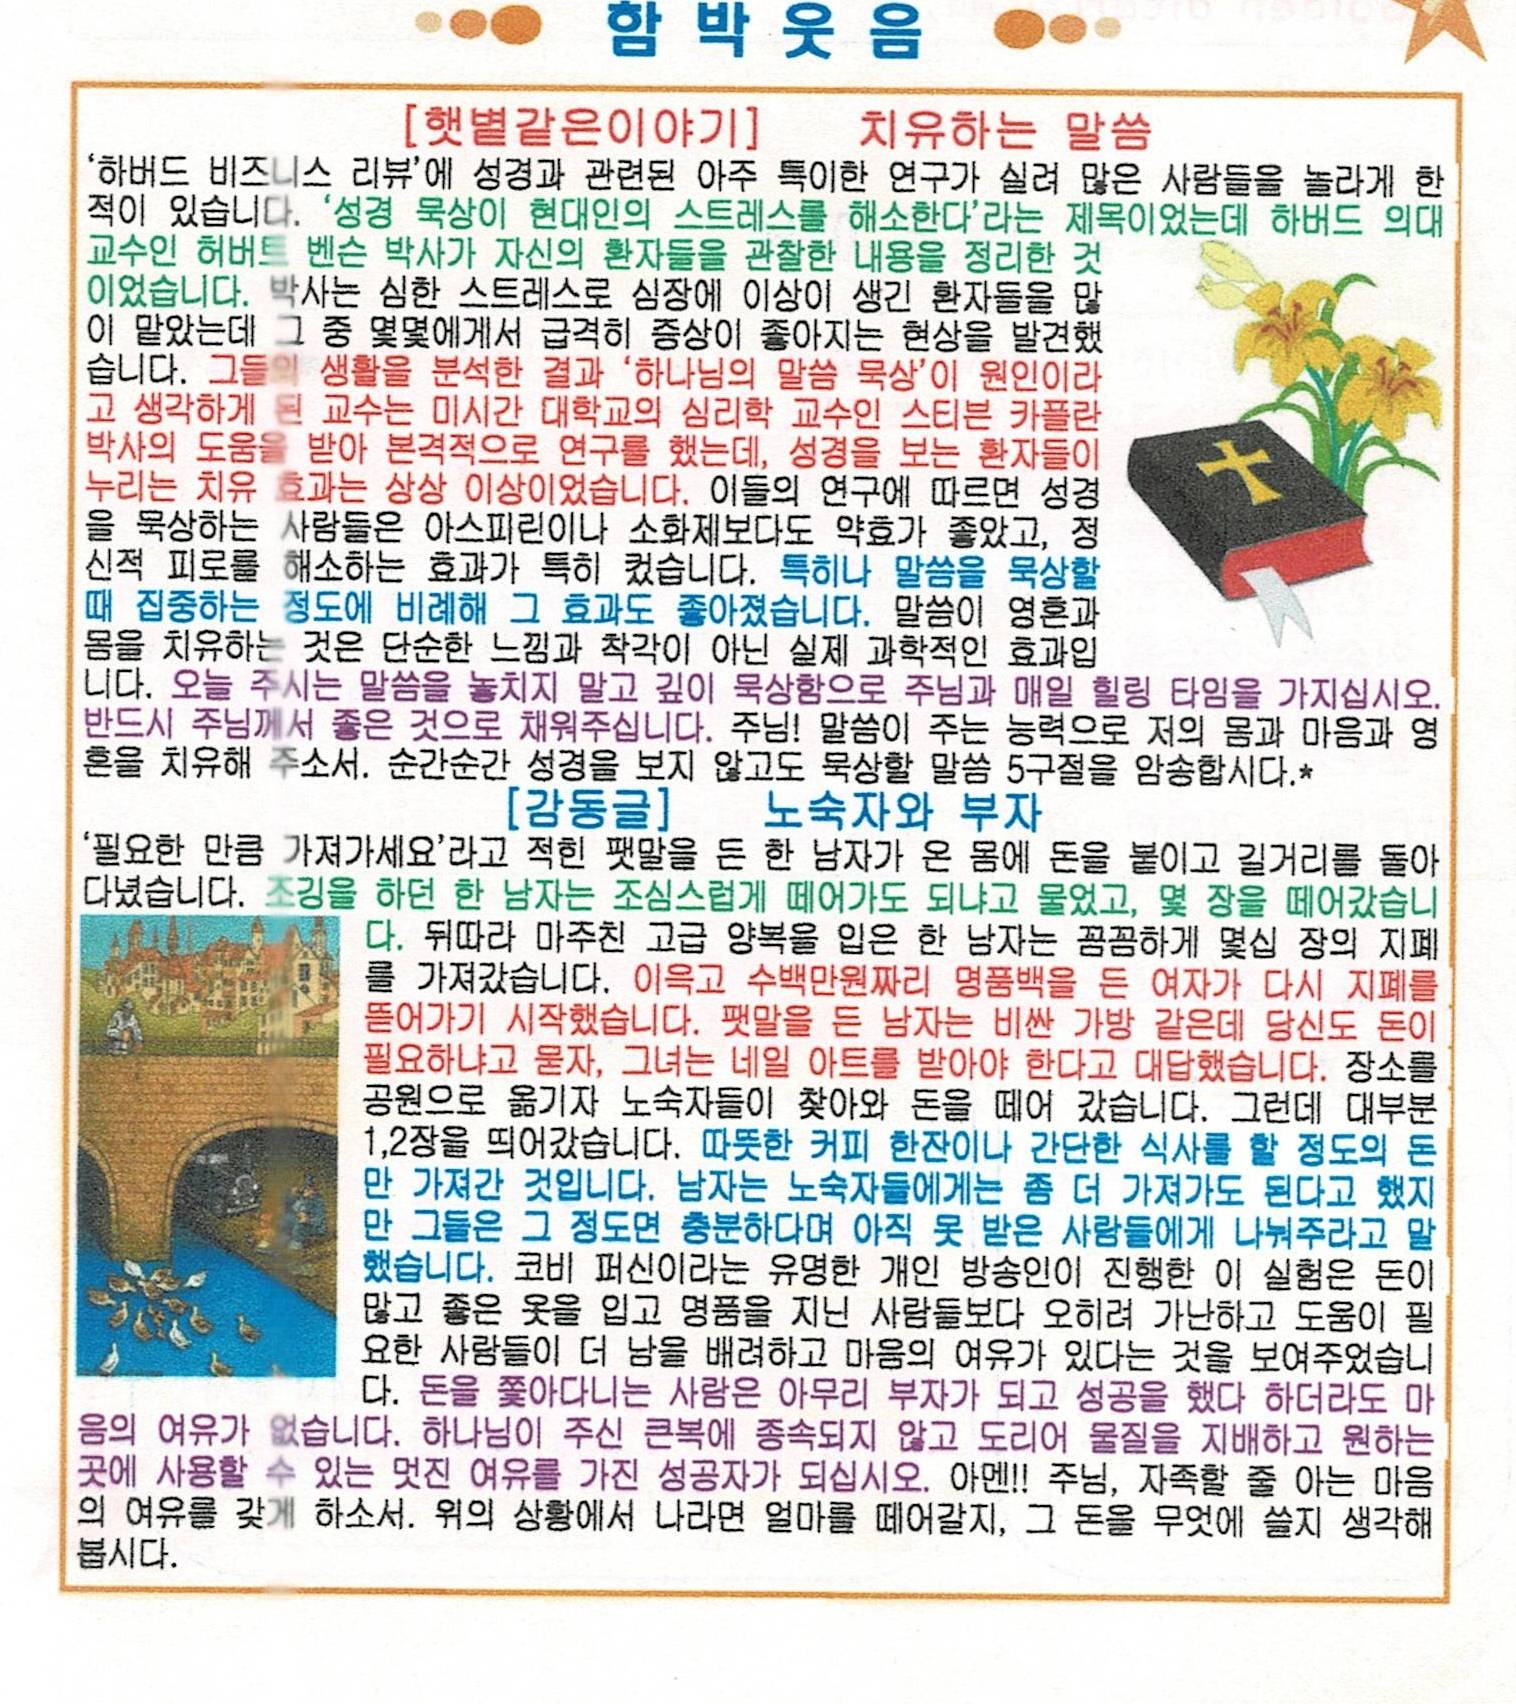 함박웃음
[햇볕같은이야기] 치유하는 말씀
‘하버드 비즈니스 리뷰’에 성경과 관련된 아주 특이한 연구가 실려 많은 사람들을 놀라게 한
적이 있습니다. ‘성경 묵상이 현대인의 스트레스를 해소한다’라는 제목이었는데 하버드 의대
교수인 허버트 벤슨 박사가 자신의 환자들을 관찰한 내용을 정리한 것
이었습니다. 박사는 심한 스트레스로 심장에 이상이 생긴 환자들을 많
이 맡았는데 그 중 몇몇에게서 급격히 증상이 좋아지는 현상을 발견했
습니다. 그들의 생활을 분석한 결과 ‘하나님의 말씀 묵상’이 원인이라
고 생각하게 된 교수는 미시간 대학교의 심리학 교수인 스티븐 카플란
박사의 도움을 받아 본격적으로 연구를 했는데, 성경을 보는 환자들이
누리는 치유 효과는 상상 이상이었습니다. 이들의 연구에 따르면 성경
을 묵상하는 사람들은 아스피린이나 소화제보다도 약효가 좋았고, 정
신적 피로를 해소하는 효과가 특히 컸습니다. 특히나 말씀을 묵상할
때 집중하는 정도에 비례해 그 효과도 좋아졌습니다. 말씀이 영혼과
몸을 치유하는 것은 단순한 느낌과 착각이 아닌 실제 과학적인 효과입
니다. 오늘 주시는 말씀을 놓치지 말고 깊이 묵상함으로 주님과 매일 힐링 타임을 가지십시오.
반드시 주님께서 좋은 것으로 채워주십니다. 주님! 말씀이 주는 능력으로 저의 몸과 마음과 영
혼을 치유해 주소서. 순간순간 성경을 보지 않고도 묵상할 말씀 5구절을 암송합시다.*
[감동글] 노숙자와 부자
‘필요한 만큼 가져가세요’라고 적힌 팻말을 든 한 남자가 온 몸에 돈을 붙이고 길거리를 돌아
다녔습니다. 조깅을 하던 한 남자는 조심스럽게 떼어가도 되냐고 물었고, 몇 장을 떼어갔습니
다. 뒤따라 마주친 고급 양복을 입은 한 남자는 꼼꼼하게 몇십 장의 지폐
를 가져갔습니다. 이윽고 수백만원짜리 명품백을 든 여자가 다시 지폐를
뜯어가기 시작했습니다. 팻말을 든 남자는 비싼 가방 같은데 당신도 돈이
필요하냐고 묻자, 그녀는 네일 아트를 받아야 한다고 대답했습니다. 장소를
공원으로 옮기자 노숙자들이 찾아와 돈을 떼어 갔습니다. 그런데 대부분
1,2장을 띄어갔습니다. 따뜻한 커피 한잔이나 간단한 식사를 할 정도의 돈
만 가져간 것입니다. 남자는 노숙자들에게는 좀 더 가져가도 된다고 했지
만 그들은 그 정도면 충분하다며 아직 못 받은 사람들에게 나눠주라고 말
했습니다. 코비 퍼신이라는 유명한 개인 방송인이 진행한 이 실험은 돈이
많고 좋은 옷을 입고 명품을 지닌 사람들보다 오히려 가난하고 도움이 필
요한 사람들이 더 남을 배려하고 마음의 여유가 있다는 것을 보여주었습니
다. 돈을 쫓아다니는 사람은 아무리 부자가 되고 성공을 했다 하더라도 마
음의 여유가 없습니다. 하나님이 주신 큰복에 종속되지 않고 도리어 물질을 지배하고 원하는
곳에 사용할 수 있는 멋진 여유를 가진 성공자가 되십시오. 아멘!! 주님, 자족할 줄 아는 마음
의 여유를 갖게 하소서. 위의 상황에서 나라면 얼마를 떼어갈지, 그 돈을 무엇에 쓸지 생각해
봅시다.